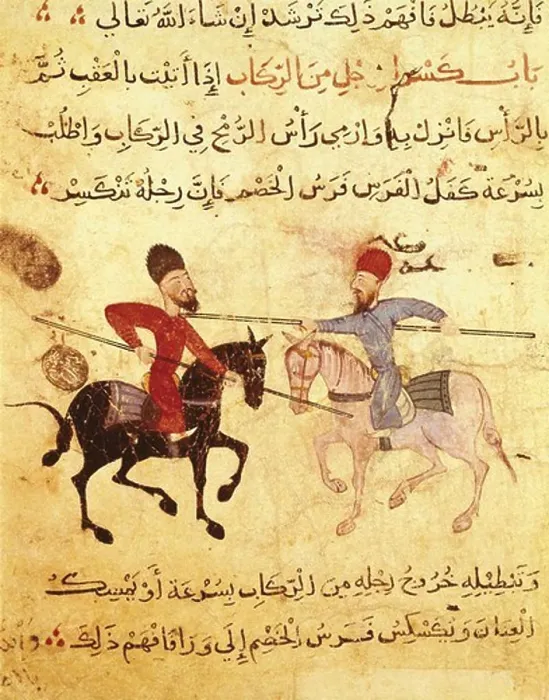 فَإِنَّهُ يَبْطُلُ فَافْهَمْ ذَلِكَ تَرْشُدْ إِنْ شَاءَ اللهُ تَعَالَى
بَابُ كَسْرِ الرِّجْلِ مِنَ الرِّكَابِ إِذَا أَتَيْتَ بِالْعَقْبِ ثُمَّ
بِالرَّأْسِ فَانْزِلْ بِهِ وَارْمِي رَأْسُ الرُّمْحِ فِي الرِّكَابِ وَاطْلُبْ
بِسُرْعَةٍ كَفَلُ الْفَرَسِ فَرَسُ الْخَصْمِ فَإِنَّ رِجْلُهُ تَنْكَسِرْ
وَتَبْطِيلِهِ خُرُوجُ رِجْلِهِ مِنَ الرِّكَابِ بِسُرْعَةٍ أَوْ يَمْسِكُ
الْعِنَانَ فَرَسُ الْخَصْمِ إِلَى فَافْهَمْ ذَلِكَ